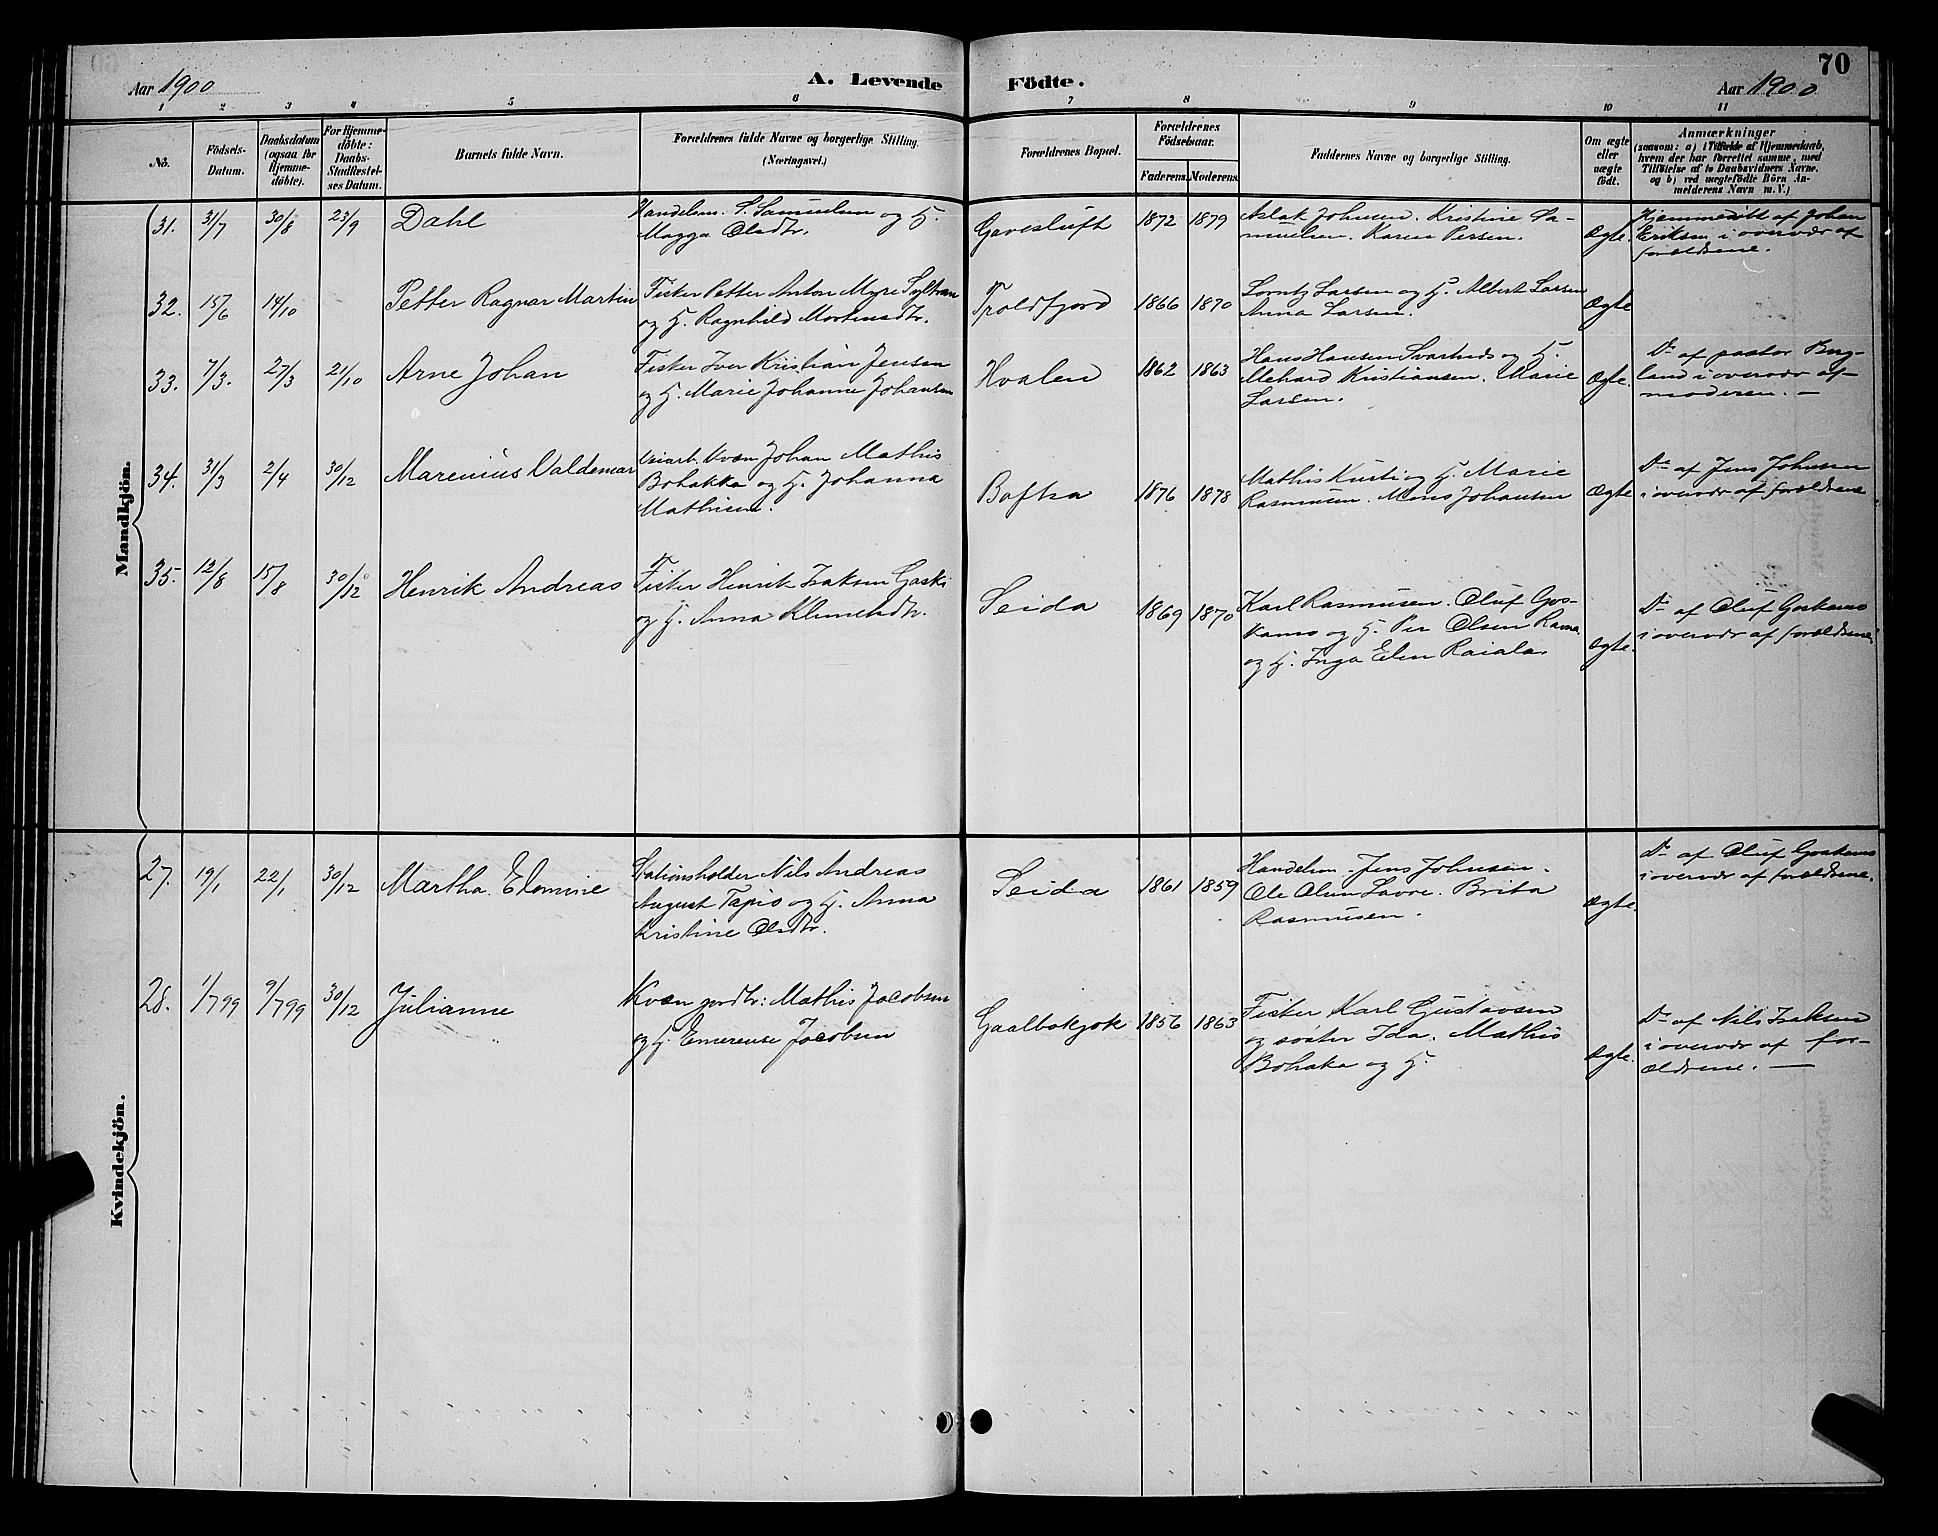 70
Aar 1900 A. Levende Födte. Aar 1900
1 2 3 4 5 6 7 8 9 10 11
No. Födsels-Datum. Daabsdatum (ogsaa for Hjemme-döbte). For Hjemme-döbte: Daabs-Stadfæstel-ses Datum. Barnets fulde Navn. Forældrenes fulde Navne og borgerlige Stilling. (Næringsvei.) Forældrenes Bopæl. Forældrenes Födselsaar. Faderens. Moderens. Faddernes Navne og borgerlige Stilling. Om ægte eller uægte født. Anmærkninger (saasom: a) i Tilfælde af Hjemmedaab, hvem der har forrettet samme, med Tilföielse af to Daabsvidners Navne. og b) ved uægtefödte Börn An-melderens Navn m. V.)
Mandkjön.
31. 31/7 30/8 23/9 Dahl
Handelsm. S. Samuelsen og H.
Magga Olsdtr.
Gavesluft 1872 1879
Aslak Johnsen. Kristine Sa-
muelsen. Karen Persen.
Ægte.
Hjemmedöbt af Johan
Eriksen i overvær af
forældrene.
32. 15/6 14/10 Petter Ragnar Martin
Fisker Petter Anton Myre
og H. Ragnhild Mortensdtr.
Troldfjord 1866 1870
Lorntz Larsen og H. Albert Larsen
Anna Larsen.
Ægte
33. 7/3. 27/3 21/10 Arne Johan
Fisker Iver Kristian Jensen
og H. Marie Johanne Johansen
Hvalen 1862 1863
Hans Hansen og H.
Mehard Kristiansen. Marie
Larsen.
Ægte.
Do af pastor Berg-
land i overvær af
moderen. —
34. 31/3 2/4 30/12 Marenius Valdemar
Veiarb. Kvæn Johan Mathis
Bohakka og H. Johanna
Mathisen.
Boftsa 1876 1878
Mathis Kusti og H. Marie
Rasmusen. Mons Johansen
Ægte
Do af Jens Johnsen
i overvær af forældrene
35. 12/8 15/8 30/12 Henrik Andreas
Fisker Henrik Isaksen Gaski
og H. Anna Klemetsdtr.
Seida 1869 1870
Karl Rasmusen. Oluf Gos-
kamo og H. Per Olsen
og H. Inga Elen Raiala.
Ægte.
Do af Oluf Goskamo
i overvær af forældrene
Kvindekjön.
27. 19/1 22/1 30/12 Martha Elomine
Stationsholder Nils Andreas
August Tapio og H. Anna
Kristine Olsdtr.
Seida 1861 1859
Handelsm. Jens Johnsen.
Ole Olsen Savre. Brita
Rasmusen.
Ægte.
Do af Oluf Goskamo
i overvær af forældrene.
28. 1/7 99 9/7 99 30/12 Julianne
Kvæn jordbr: Mathis Jacobsen
og H. Emerense Jacobsen
Gaalbokjok 1856 1863
Fisker Karl Gustavsen
og søster Ida. Mathis
Bohaka og H.
Ægte.
Do af Nils Isaksen
i overvær af for-
ældrene. —